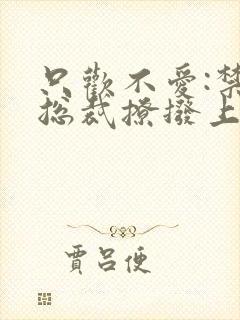 只歡不愛:禁
總裁撩撥上
賈呂便